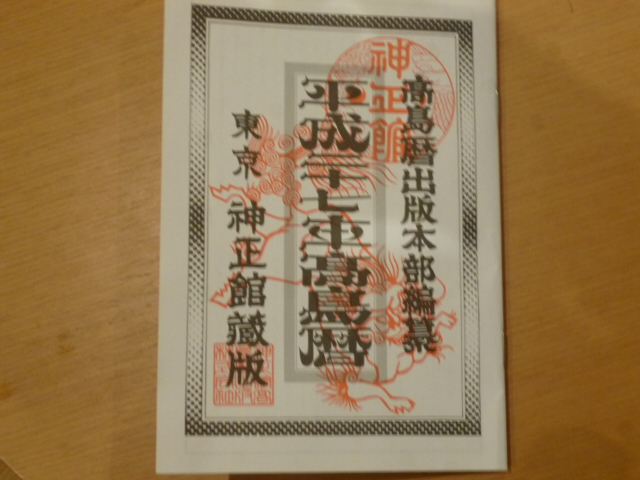 高島暦出版本部編纂
神正館
平成二十七年高島暦
東京 神正館蔵版